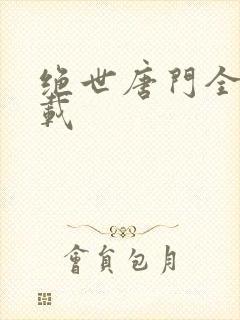 绝世唐門全
載
會員包月